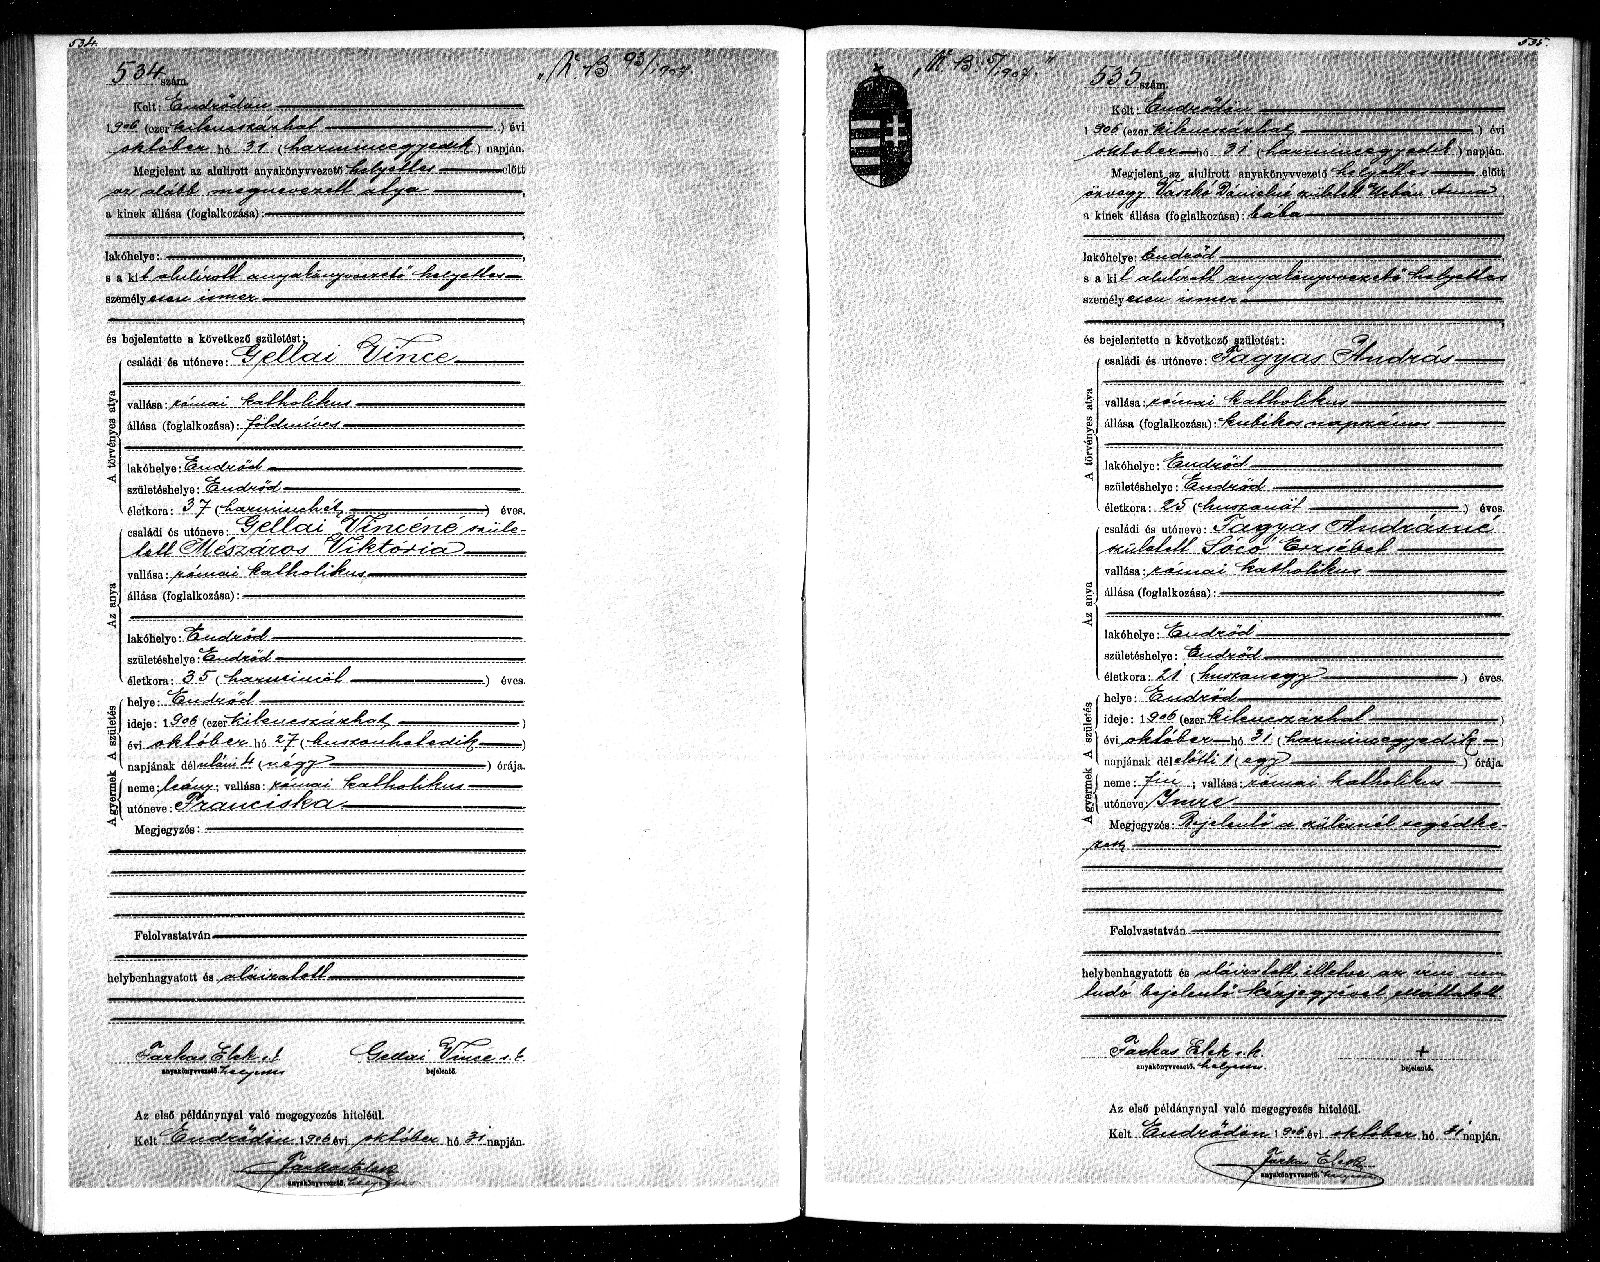 534.
534 szám.
Kelt: Endrődön
1906 (ezer kilencszázhat) évi
október hó 31 (harmincegyedik) napján.
Megjelent az alulirott anyakönyvvezető helyettes előtt
az alább megnevezett atya
a kinek állása (foglalkozása):
lakóhelye:
s a kit alulírott anyakönyvvezető helyettes
személyesen ismer
és bejelentette a következő születést:
A törvényes atya
családi és utóneve: Gellai Vince
vallása: római katholikus
állása (foglalkozása): földmíves
lakóhelye: Endrőd
születéshelye: Endrőd
életkora: 37 (harminchét) éves.
Az anya
családi és utóneve: Gellai Vincéné szüle-
tett Mészáros Viktoria
vallása: római katholikus
állása (foglalkozása):
lakóhelye: Endrőd
születéshelye: Endrőd
életkora: 35 (harmincöt) éves.
A gyermek A születés
helye: Endrőd
ideje: 1906 (ezer kilencszázhat)
évi október hó 27 (huszonhetedik)
napjának délutáni 4 (négy) órája.
neme: leány; vallása: római katholikus
utóneve: Franciska
Megjegyzés:
Felolvastatván
helybenhagyatott és aláiratott
Farkas Elek s. k. Gellai Vince s. k.
anyakönyvvezető helyettes bejelentő.
Az első példánynyal való megegyezés hiteléül.
Kelt Endrődön 1906 évi október hó 31 napján.
Farkas Elek
anyakönyvvezető. helyettes
535.
535 szám.
Kelt: Endrődön
1906 (ezer kilencszázhat) évi
október hó 31 (harmincegyedik) napján.
Megjelent az alulirott anyakönyvvezető helyettes előtt
özvegy Vaskó Dánielné született Urbán Anna
a kinek állása (foglalkozása): bába
lakóhelye: Endrőd
s a kit alulírott anyakönyvvezető helyettes
személyesen ismer
és bejelentette a következő születést:
A törvényes atya
családi és utóneve: Fagyas András
vallása: római katholikus
állása (foglalkozása): kubikos napszámos
lakóhelye: Endrőd
születéshelye: Endrőd
életkora: 25 (huszonöt) éves.
Az anya
családi és utóneve: Fagyas Andrásné
született Sóczó Erzsébet
vallása: római katholikus
állása (foglalkozása):
lakóhelye: Endrőd
születéshelye: Endrőd
életkora: 21 (huszonegy) éves.
A gyermek A születés
helye: Endrőd
ideje: 1906 (ezer kilencszázhat)
évi október hó 31 (harmincegyedik)
napjának délelőtti 1 (egy) órája.
neme: fiú; vallása: római katholikus
utóneve: Imre
Megjegyzés: Bejelentő a szülésnél segédke-
zett
Felolvastatván
helybenhagyatott és aláiratott, illetve az irni nem
tudó bejelentő kézjegyével elláttatott
Farkas Elek s. k. +
anyakönyvvezető. helyettes. bejelentő.
Az első példánynyal való megegyezés hiteléül.
Kelt Endrődön 1906 évi október hó 31 napján.
Farkas Elek
anyakönyvvezető. helyettes